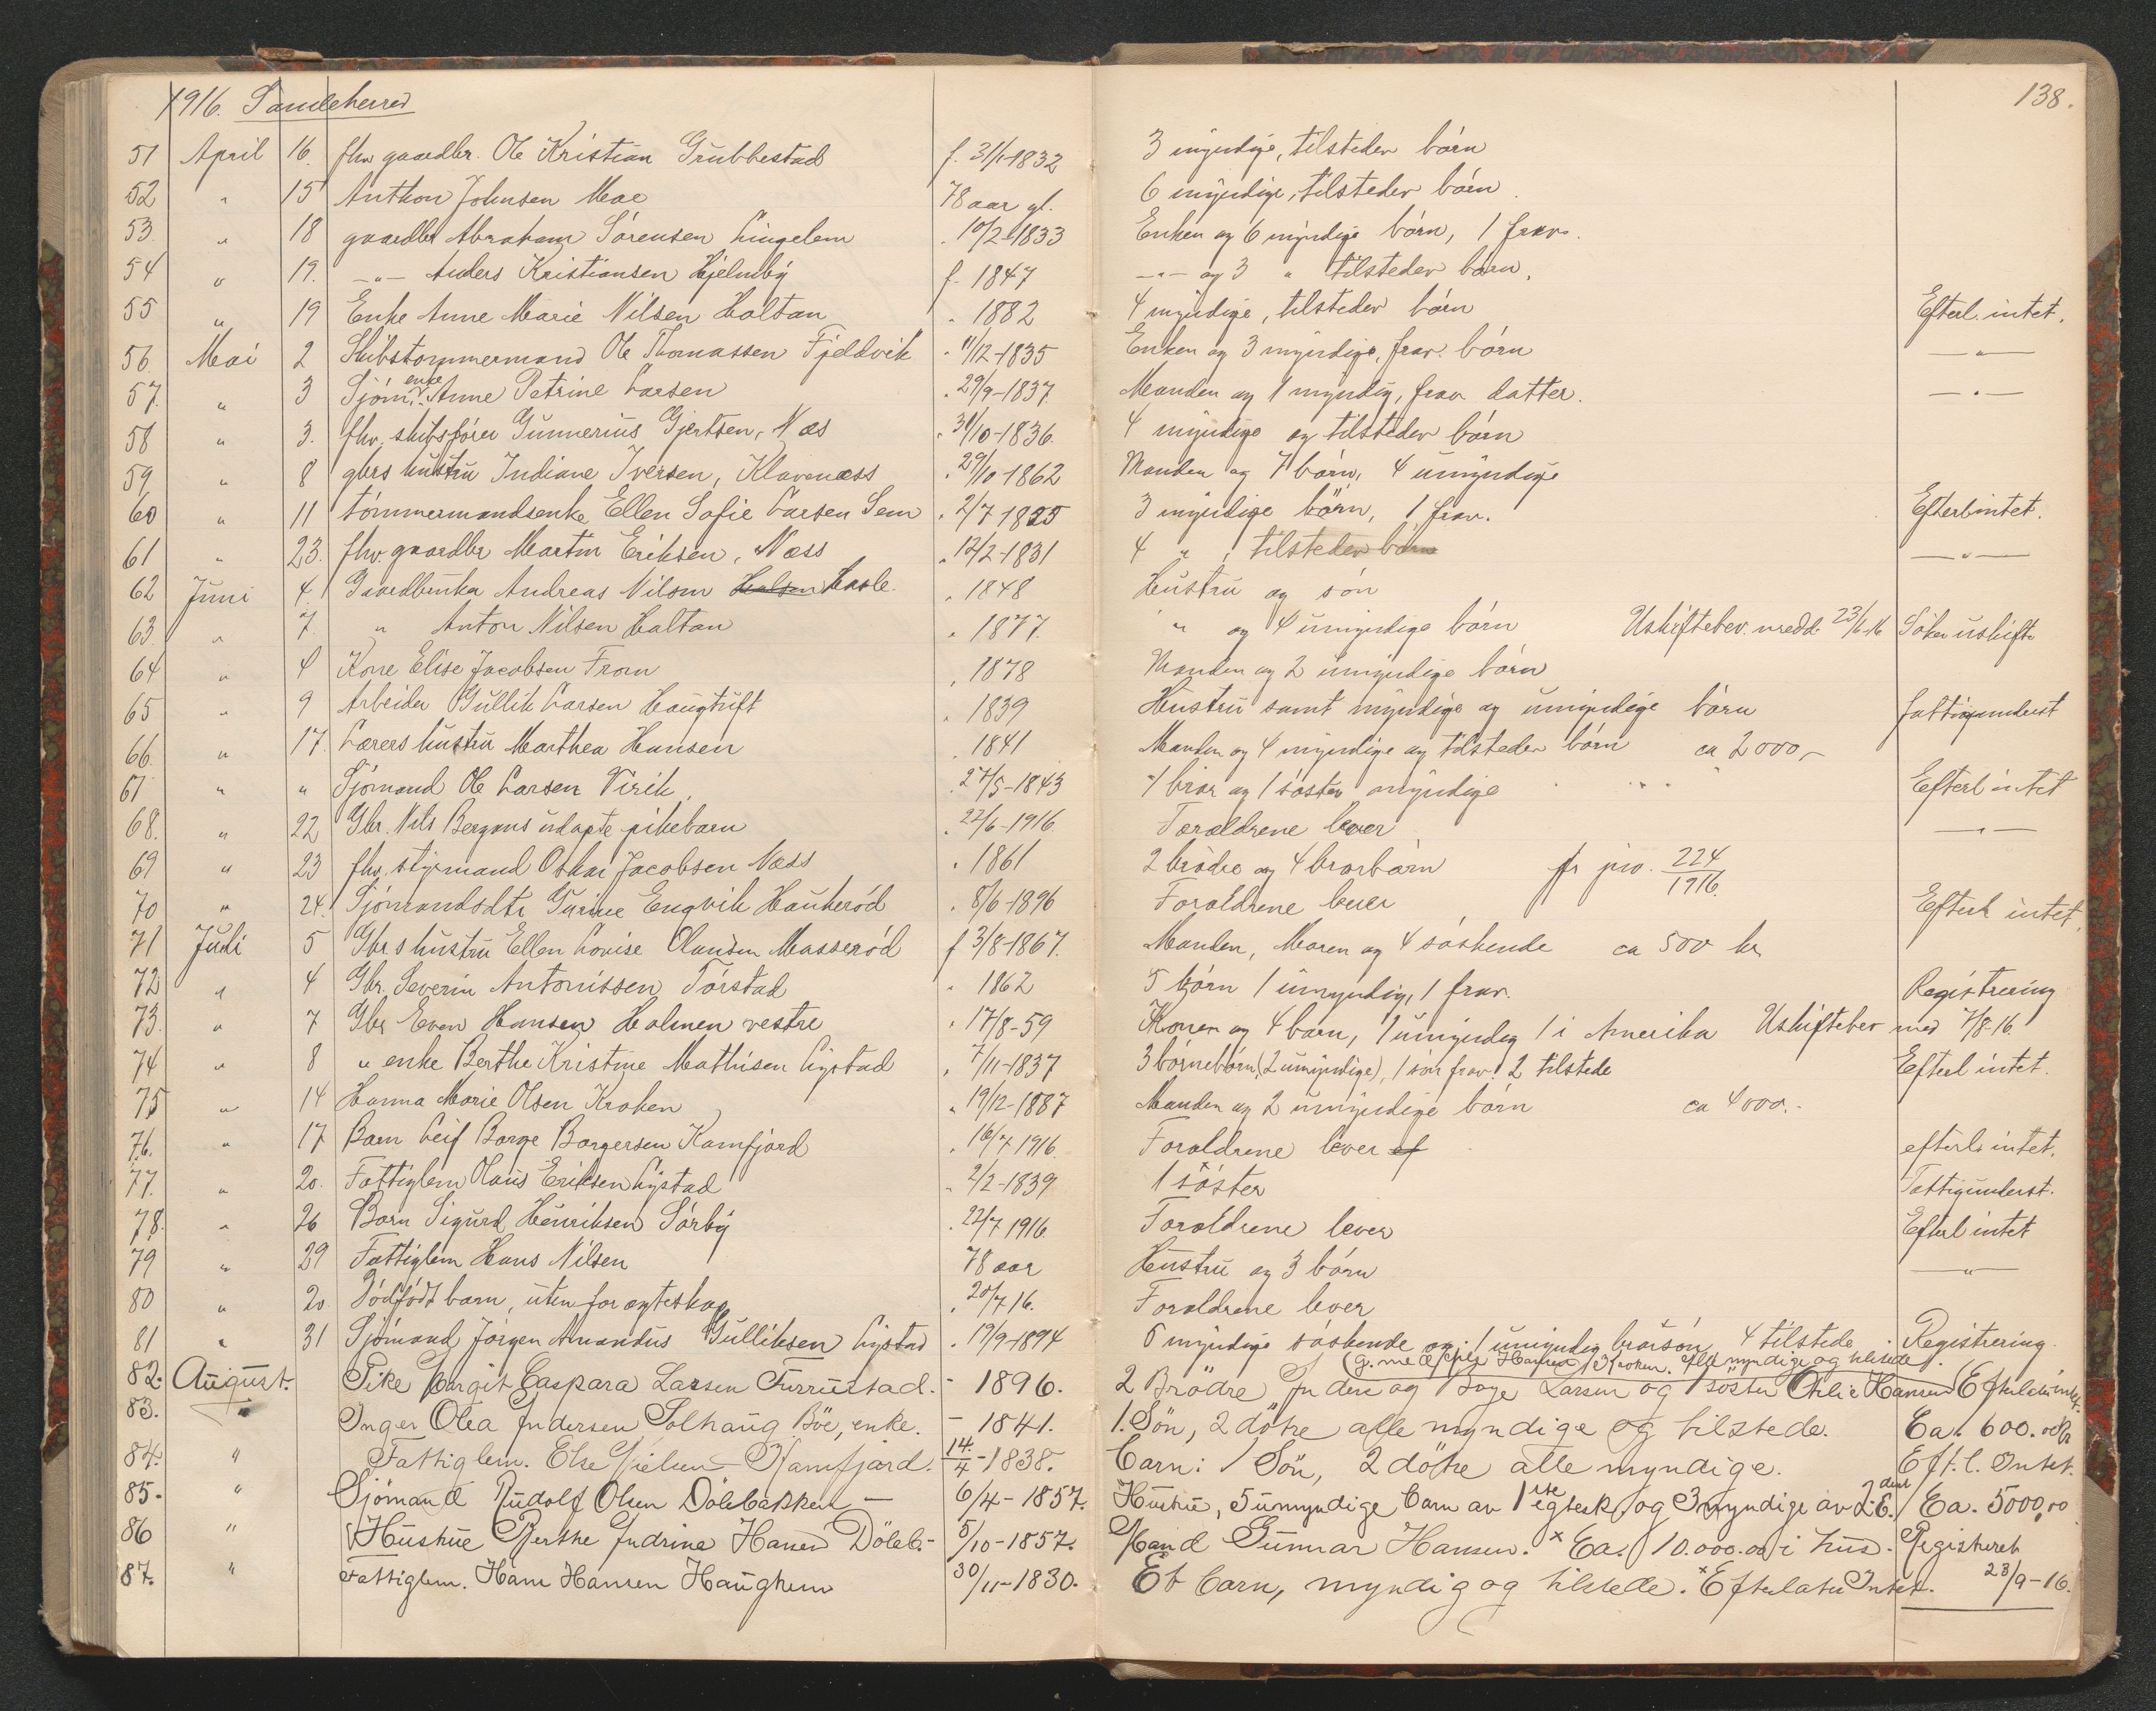 1916. Sandeherred
138.
51 April 16. fhv gaardbr. Ole Kristian Grubbestad f. 31/1-1832 3 myndige, tilstedev börn
52 " 15 Anthon Johnsen Moe 78 aar gl. 6 myndige, tilstedev börn.
53. " 18 gaardbr Abraham Sörensen Lingelem . 10/2-1833 Enken og 6 myndige börn, 1 frav.
54 " 19. -"- Anders Kristiansen Hjelmby f. 1847 -"- og 3 " tilstedev börn.
55 " 19 Enke Anne Marie Nilsen Haltan . 1882 4 myndige, tilstedev börn Efterl. intet.
56. Mai 2 Skibstømmermand Ole Thomassen Fjeldvik . 11/12-1835 Enken og 3 myndige, frav. börn -"-
57. " 3 Sjöm. enke Anne Petrine Larsen . 29/9-1837. Manden og 1 myndig, frav datter. -"-
58 " 3. fhv. skibsförer Gunnerius Gjertsen, Næs . 31/10-1836. 4 myndige og tilstedev börn
59 " 8 gbrs hustru Indiane Iversen, Klavenæss . 29/10-1862 Manden og 7 börn, 4 umyndige
60 " 11 tömmermandsenke Ellen Sofie Larsen Sem . 2/7 1825 3 myndige börn, 1 frav. Efterl intet.
61 " 23. fhv. gaardbr Martin Eriksen, Næss . 12/2-1831 4 " , tilstedev börn -"-
62 Juni 4. Gaardbruker Andreas Nilsen Hasle . 1848 Hustru og sön
63. " 7. " Anton Nilsen Haltan . 1877. " og 4 umyndige börn Uskiftebev. medd. 23/6 16 Söker uskifte
64 " 4 Kone Elise Jacobsen Fron . 1878 Manden og 2 umyndige börn
65 " 9 Arbeider Gullik Larsen Haugtuft . 1839 Hustru samt myndige og umyndige börn fattigunderst
66. " 17. Lærers hustru Marthea Hansen . 1841 Manden og 4 myndige og tilstedev börn ca 2000,-
67 " " Sjömand Ole Larsen Virik. . 27/5-1843 1 bror og 1 söster myndige Efterl intet
68. " 22 Gbr. Nils Bergans udøpte pikebarn . 22/6-1916 Forældrene lever -"-
69 " 23 fhv. styrmand Oskar Jacobsen Næss . 1861 2 brödre og 4 brorbörn fr jno. 224/1916.
70 " 24. Sjömandsdtr Gurine Engvik Haukeröd . 8/6-1896 Foraldrene lever Efterl intet.
71 Juli 5 Gbrs hustru Ellen Lovise Olausen Masseröd f 3/8-1867. Manden, Moren og 4 söskende ca 500 kr
72 " 4 Gbr. Severin Antonissen Törstad . 1862 5 börn 1 umyndig, 1 frav. Registrering
73. " 7 Gbr Even Hansen Holmen vestre . 17/8-59 Konen og 4 barn, 1 umyndig 1 i Amerika Uskiftebev med 7/8-16.
74 " 8 " enke Berthe Kristine Mathisen Lystad . 7/11-1837 3 börnebörn, (2 umyndige), 1 sön frav. 2 tilstede Efterl intet.
75 " 14 Hanna Marie Olsen Kroken . 19/12-1887 Manden og 2 umyndige börn ca 4000.-
76. " 17 Barn Leif Borge Borgersen Kamfjord . 16/7 1916. Foraldrene lever ef efterl. intet.
77. " 20. Fattiglem Olaus Eriksen Lystad . 2/2-1839 1 söster Fattigunderst.
78. " 26 Barn Sigurd Henriksen Sörby . 22/7 1916. Foraldrene lever Efterl intet
79 " 29 Fattiglem Hans Nilsen 78 aar Hustru og 3 börn -"-
80 " 20. Dödfödt barn, uten for ægteskap . 20/7 16. Foraldrene lever
81 " 31 Sjömand Jörgen Amandus Gulliksen Lystad . 19/9-1894 6 myndige söskende og 1 umyndig brorsön 4 tilstede. Registrering
(g. me Kroken. alle myndige og tilstede)
82. August. Pike Birgit Caspara Larsen Furrustad. - 1896. 2 Brödre Anders og Boye Larsen og 1 söster Othilie Hansen Efterlater intet.
83. " Inger Olea Andersen Solhaug Böe, enke. - 1841. 1. Sön, 2 dötre alle myndige og tilstede. Ca. 600.00 kr
84. " Fattiglem. Else Nielsen - Kamfjord. 14./4-1838. Barn: 1 Sön, 2 dötre alle myndige. Eft.l. Intet.
85. " Sjömand Rudolf Olsen Dölebakken - 6/4-1857. Hustru, 5 umyndige barn av 1ste egtesk. og 3 myndige av 2det E. Ca. 5000,00
86 " Hustrue Berthe Andrine Hansen Döleb. - 5/10-1857. Mand Gunnar Hansen. x Ca. 10.000.00 i hus. Registreret
87. " Fattiglem. Hans Hansen Haughem 30/11-1830. Et barn, myndig og tilstede. x Efterlater Intet. 23/9-16.